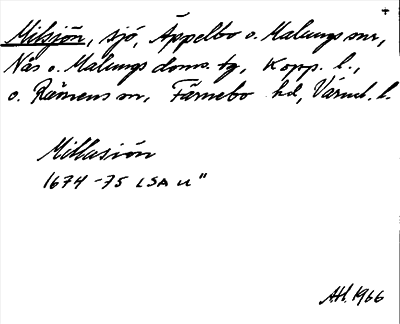 +
Milsjön, sjö, Äppelbo o. Malungs snr,
Nås o. Malungs doms. tg, Kopp. l.,
o. Rämens sn, Färnebo hd, Värml. l.
Millusiön
1674-75 LSA u"
AHl. 1966